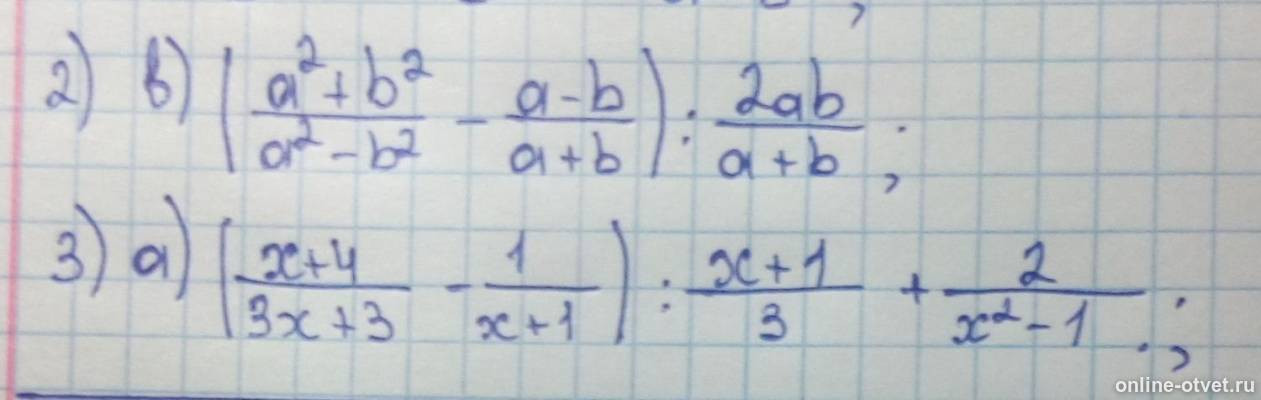 2) в) ( (a² + b²)/(a² - b²) - (a - b)/(a + b) ) : 2ab/(a + b) ;
3) а) ( (x + 4)/(3x + 3) - 1/(x + 1) ) : (x + 1)/3 + 2/(x² - 1) ;
online-otvet.ru